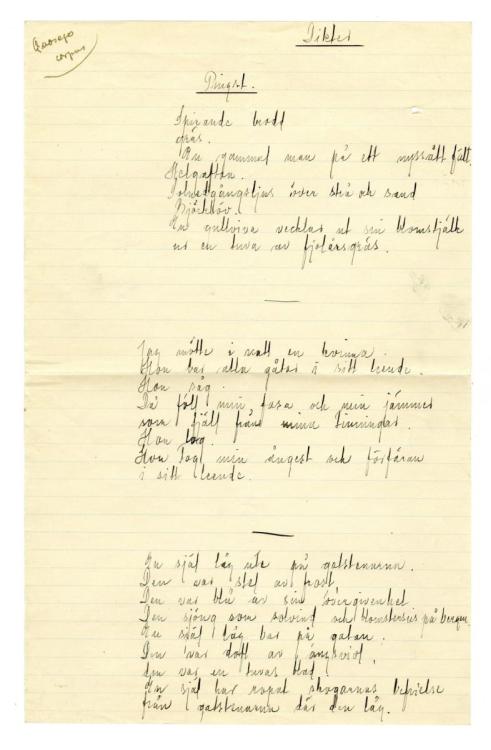 Dikter
Pingst.
Spirande brodd
gräs.
En gammal man på ett nyssått fält.
Helgafton.
Solnedgångsljus över strå och sand
Björklöv.
En gullviva vecklar ut sin blomstjälk
ur en tuva av fjolårsgräs.
Jag mötte i natt en kvinna.
Hon bar alla gåtor i sitt leende.
Hon såg.
Då föll min fasa och min jämmer
som fjäll från mina tinningar.
Hon log.
Hon tog min ångest och förfäran
i sitt leende.
En själ låg ute på gatstenarna.
Den var stel av frost.
Den var blå av sin övergivenhet.
Den sjöng som solvind och blomstersus på bergen
En själ låg bar på gatan.
Den var doft av
den var en tuvas blad.
En själ har ropat skogarnas befrielse
från gatstenarna där den låg.